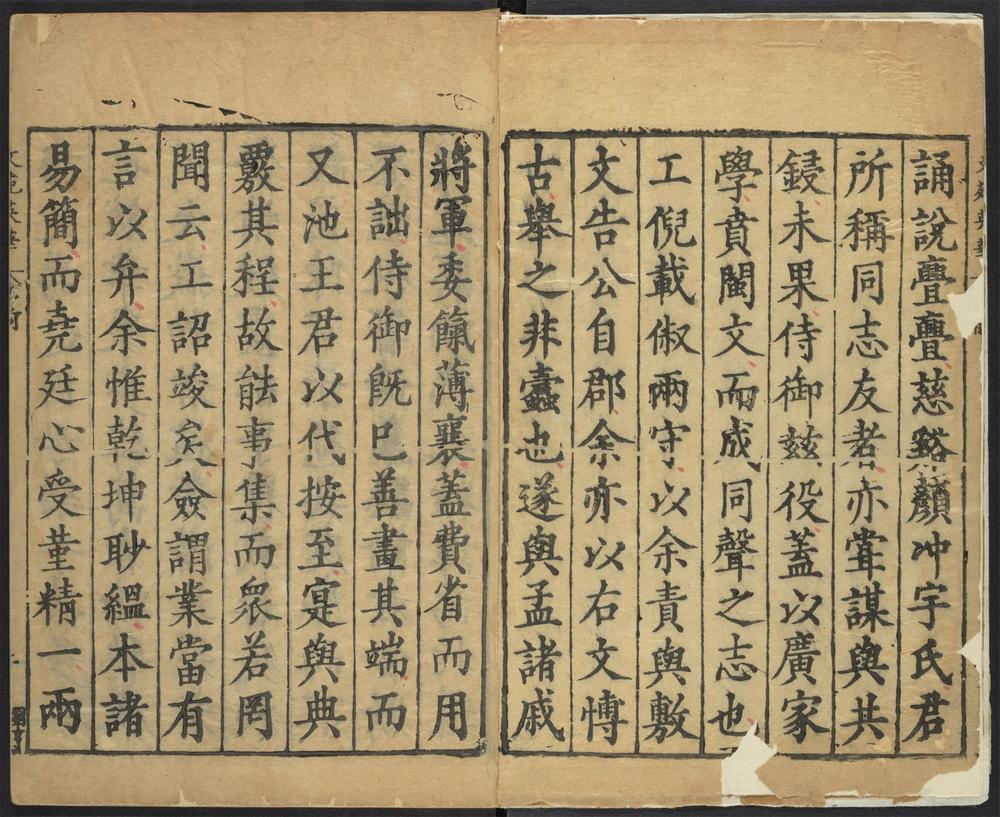 誦說亹亹慈谿顏冲宇氏君
所稱同志友者亦甞謀與共
鋟未果侍御茲役蓋以廣家
學賁閩文而成同聲之志也
工倪載俶兩守以余責與敷
文告公自郡余亦以右文愽
古舉之非蠹也遂與孟諸戚
將軍委餼薄襄蓋費省而用
不詘侍御旣巳善畫其端而
又池王君以代按至寔與典
覈其程故能事集而衆若罔
聞云工詔竣矣僉謂業當有
言以弁余惟乾坤眇緼本諸
易簡而堯廷心受堇精一兩